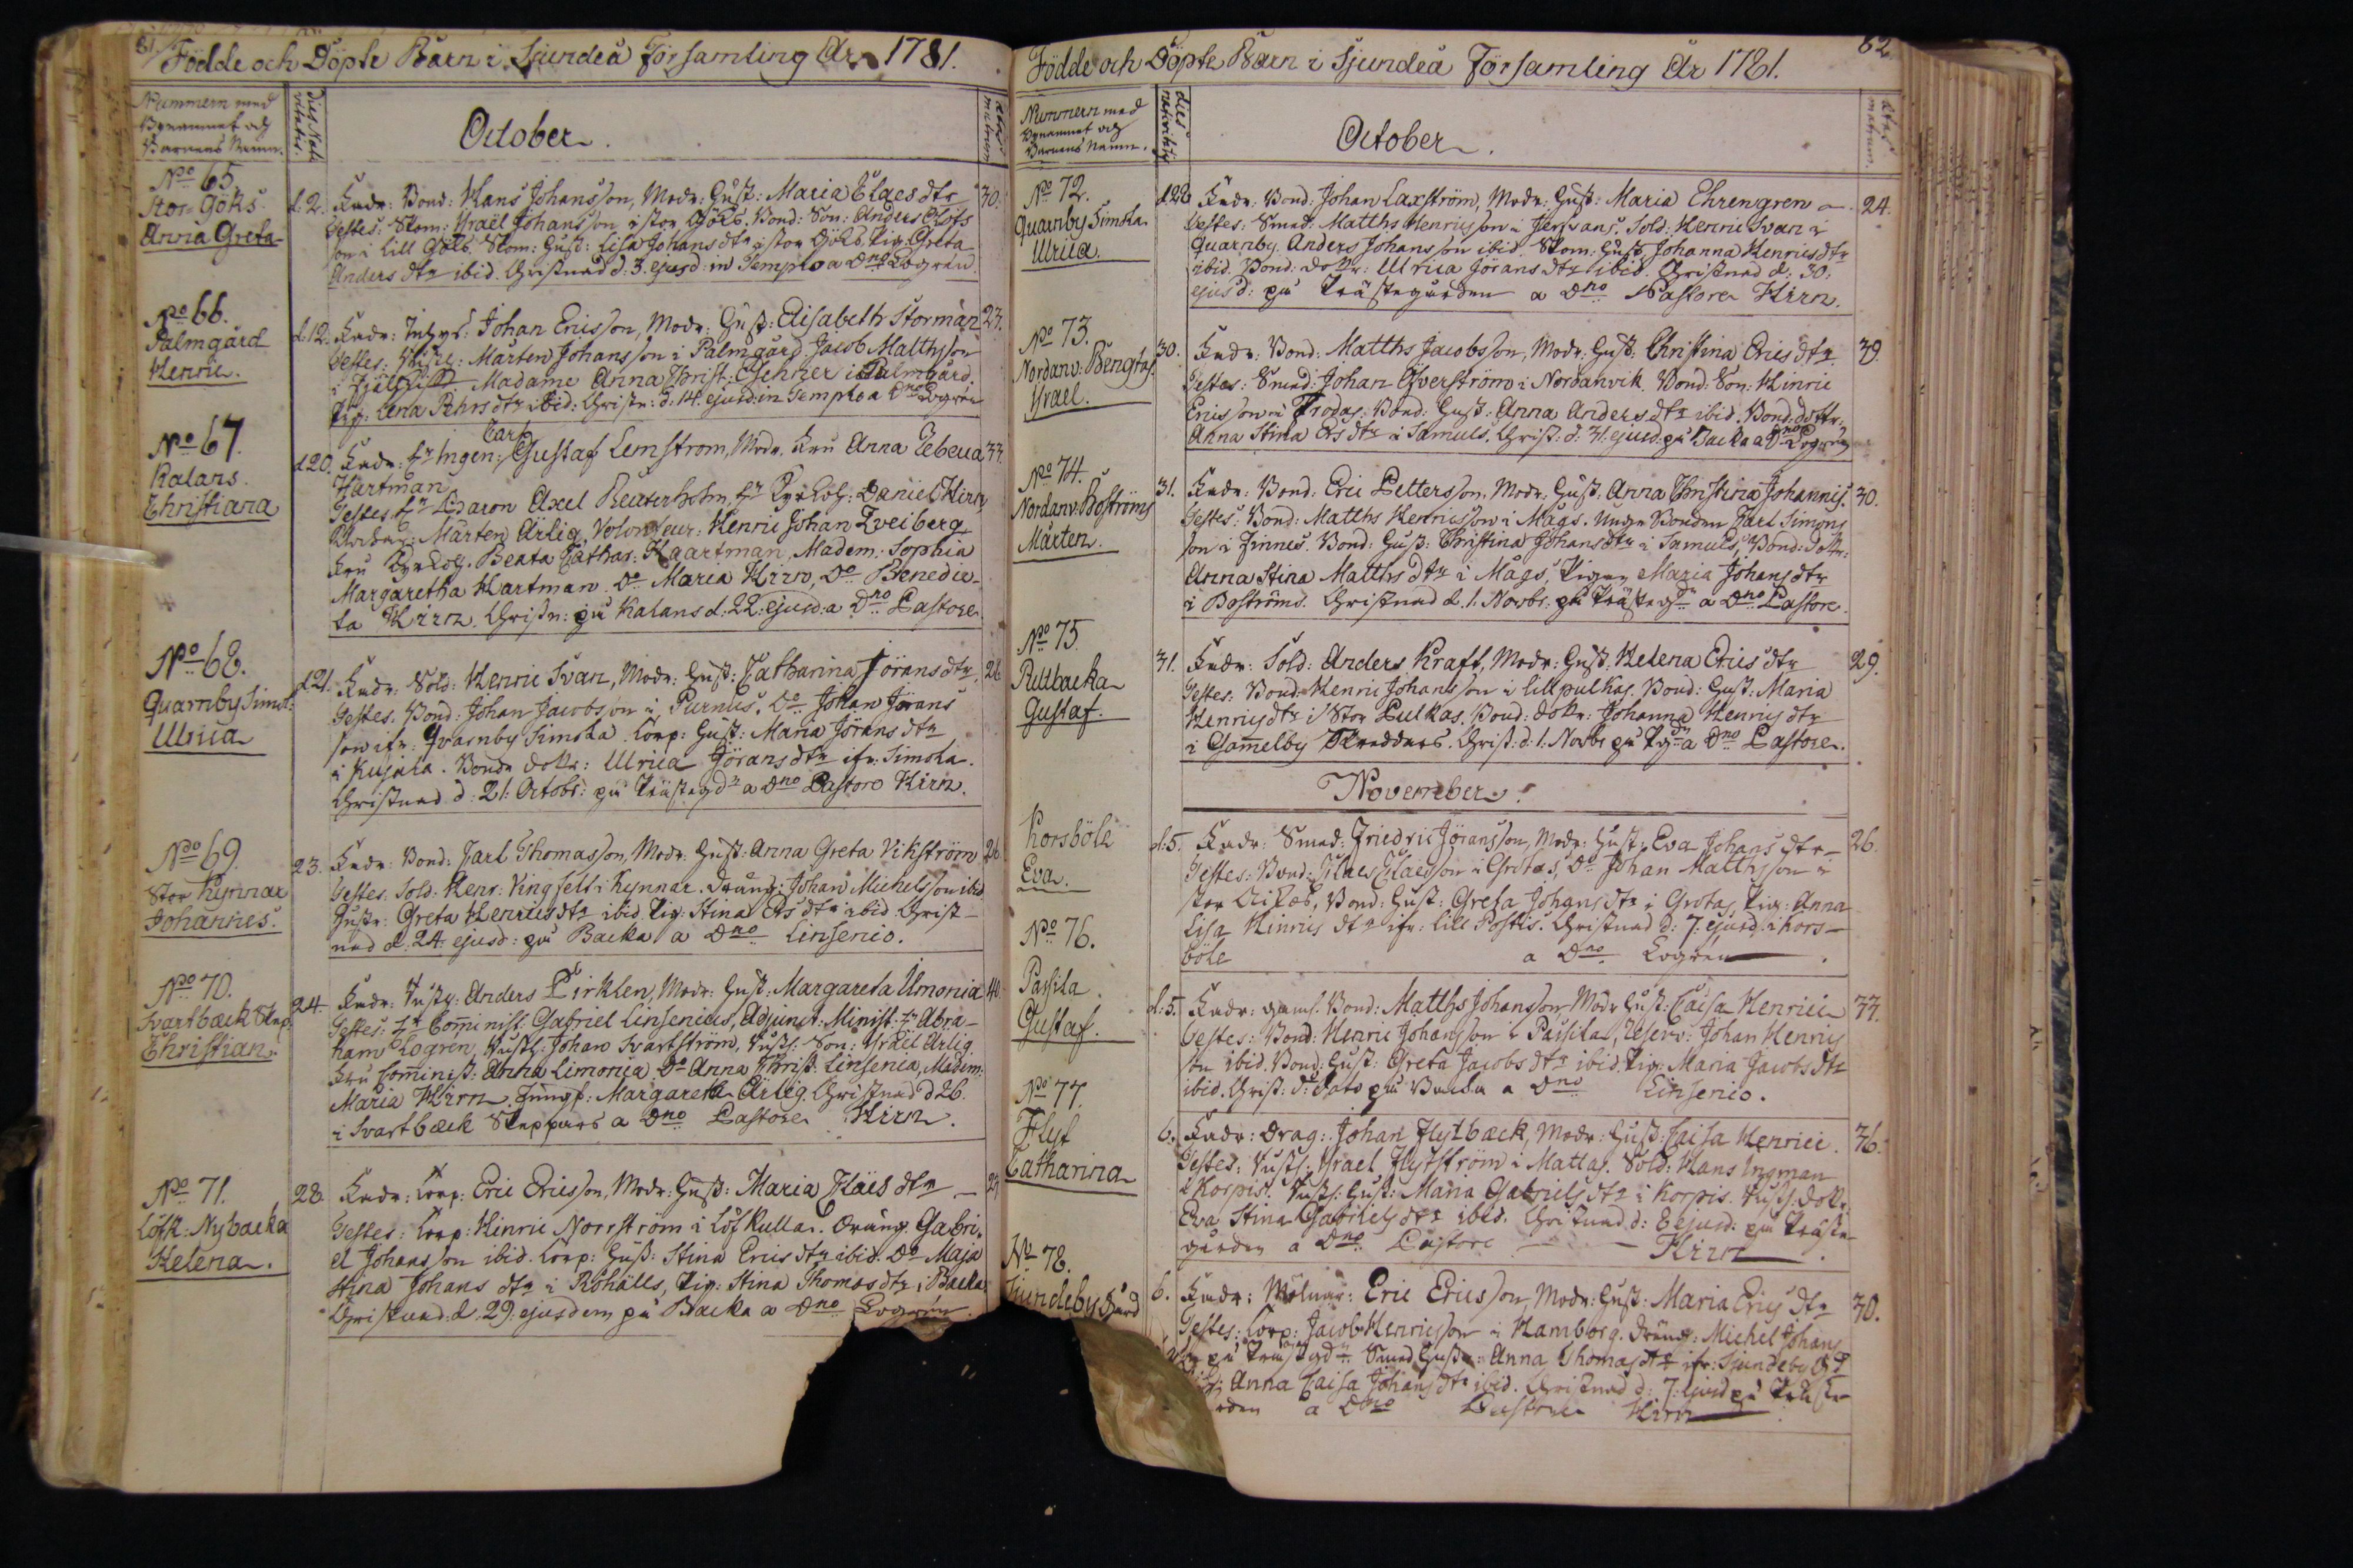 81.
Födde och Döpte Barn i Sjundeå Församling År 1781.
Nummern med
Bynamnet och
Barnens Namn.
Dies Nati
vitatis.
October.
ætas
matrum
No 65.
Stor-Göks.
Anna Greta
d. 2. Fadr: Bond: Hans Johansson, Modr: Hust: Maria Claes dtr 30.
Testes: Skom: Israël Johansson i stor Göks. Bond: Son: Anders
son i lill Göks. Skom: Hust: Lisa Johans dtr i stor Göks. Pig. Greta
Anders dtr ibid. Christnad d: 3. ejusd: in Templo a Dno Logrén.
No 66.
Palmgård
Henric.
d. 12. Fadr: Johan Ericsson, Modr: Hust: Elisabeth Storman 23.
Testes: Mårten Johansson i Palmgård. Jacob Mattsson
i Madame Anna Christ: Gehner i Palmgård
Pig: Lena Pehrs dtr ibid: Christn: d: 14. ejusd: in Templo a Dno Logrén
No 67.
Kalans.
Christiana
d 20. Fadr: Hr Ingen: Carl Gustaf Lemstrom, Modr. Fru Anna Rebeca 33.
Hartman
Testes Hr Baron Axel Reuterholm, Hr Daniel Hirn
Mårten Ärlig, Volonteur: Henric Johan Zveiberg
Fru Beata Cathar: Haartman, Madem: Sophia
Margaretha Hartman. Do Maria Hirn, Do Benedic-
ta Hirn. Christn: på Kalans d: 22: ejusd: a Dno Pastore
No 68.
Quarnby Simos:
Ulrica
d 21. Fadr: Sold: Henric Svan, Modr: Hust: Catharina Jörans dtr. 26
Testes. Bond: Johan Jacobsson i Purnus. Do Johan Jörans
son ifr: Qvarnby Simola. Corp: Hust: Maria Jörans dtr
i Kujala. Bonde dottr: Ulrica Jörans dtr ifr: Simola.
Christnad d: 21: Octobr: på Prästegdn a Dno Pastore Hirn.
No 69.
Stor Kynnar
Johannes.
23. Fadr: Bond: Carl Thomasson, Modr: Hust: Anna Greta Vikström 26
Testes. Sold. Henr: Kingselt i Kynnar. Dräng: Johan Michelsson ibid
Hustr: Greta Henrics dtr ibid. Pig: Stina Ers dtr ibid Christ-
nad d: 24. ejusd: på Backa a Dno Linsenio.
No 70.
Svartbäck Skep:
Christian.
24. Fadr: Anders Pirklen, Modr: Hust: Margareta Limonia 40.
Testes: Hr Cominist: Gabriel Linsenius, Adjunct: Minist: Hr Abra-
ham Logrén, Johan Svartström, Son: Israël Ärlig.
Fru Cominist: Anna Limonia, Do Anna Christ: Linsenia, Madem:
Maria Hirn. Jungf: Margareta Ärlig. Christnad d 26.
i Svartbäck Skeppars a Dno Pastore Hirn.
No 71.
Löfk: Nybacka
Helena.
28. Fadr: Corp: Eric Ericsson, Modr: Hust: Maria Claës dtr
Testes: Corp: Hinric Norrström i Löfkulla. Dräng. Gabri-
el Johansson ibid. Corp: Hust: Stina Erics dtr ibid. Do Maja
Stina Johans dtr i Röhälls, Pig: Stina Thomas dtr i Backa
Christnad: d. 29. ejusdem på Backa a Dno Logrén.
82
Födde och Döpte Barn i Sjundeå Församling År 1781.
Nummern med
Bynamnet och
Barnens Namn.
dies
nativitatis
October.
ætas
matrum.
No 72.
Quarnby Simola
Ulrica.
d 28 Fadr: Bond: Johan Laxström, Modr: Hust: Maria Ehrengren 24.
Testes: Smed: Matths Henricsson i Jersvans. Sold: Henric Svan i
Quarnby. Anders Johansson ibid. Skom: Hust: Johanna Henrics dtr
ibid. Bond: dottr: Ulrica Jörans dtr ibid. Christnad d: 30.
ejusd: på Prästegården a Dno Pastore Hirn.
No 73.
Nordanv: Bengtas.
Israel.
30. Fadr: Bond: Matths Jacobsson, Modr: Hust: Christina Erics dtr 39.
Testes: Smed: Johan Öfverström i Nordanvik. Bond: Son: Hinric
Ericsson i Frodas. Bond: Hust: Anna Anders dtr ibid. Bond: dottr:
Anna Stina Ers dtr i Samuls. Christ: d: 31. ejusd: på Backa a Dno Logrén
No 74.
Nordanv: Boströms
Mårten.
31. Fadr: Bond: Eric Pettersson, Modr: Hust: Anna Christina Johannis. 30.
Testes: Bond: Matths Henricsson i Mågs. Unge Bonden Carl Simons
son i Finnes. Bond: Hust: Christina Johans dtr i Samuls, Bond: dottr:
Anna Stina Matths dtr i Mågs, Pigan Maria Johans dtr
i Boströms. Christnad d. 1. Novbr: på Prästegdn a Dno Pastore.
No 75
Rutbacka
Gustaf.
31. Fadr: Sold: Anders Kraft, Modr: Hust. Helena Erics dtr 29.
Testes. Bond: Henric Johansson i lill pulkas. Bond: Hust: Maria
Henrics dtr i Stor Pulkas. Bond: dottr: Johanna Henrics dtr
i Gamelby Skreddars. Christ: d: 1. Novbr på Pgdn a Dno Pastore.
November.
Korsböle
Eva.
d. 5. Fadr: Smed: Friedric Jöransson, Modr: Hust: Eva Johans dtr 26.
Testes: Bond: Claes Claesson i Grotas, Do Johan Mattsson i
stor, Bond: Hust: Greta Johans dtr i Grotas, Pig: Anna
Lisa Hinrics dtr ifr: lill Postis. Christnad d: 7: ejusd: i Kors-
böle a Dno Logrén
No 76.
Passila
Gustaf.
d. 5. Fadr: gaml. Bond: Matths Johansson, Modr Hust: Caisa Henrici 33.
Testes: Bond: Henric Johansson i Passila, Reserv: Johan Henrics
son ibid. Bond: Hust: Greta Jacobs dtr ibid. Pig: Maria Jacobs dtr
ibid. Christ: d: dato på Backa a Dno Linsenio.
No 77.
Flyt
Catharina
6. Fadr: Drag: Johan Flytbäck, Modr: Hust: Caisa Henrici. 36.
Testes: Israel Flytström i Mattas. Sold: Hans Ingman
i Korpis. Hust: Maria Gabriels dtr i Korpis. dottr:
Eva Stina Gabriels dtr ibid. Christnad d: 8 ejusd: på Präste-
gården a Dno Pastore Hirn
No 78.
Sjundeby Gård
6. Fadr: Mölnar: Eric Ericsson, Modr: Hust: Maria Erics dtr 30.
Testes: Corp: Jacob Henricsson i Hamborg. Dräng: Michel Johans
på Prästegdn. Smed Hustr: Anna Thomas dtr ifr: Sjundeby Gd
Anna Caisa Johans dtr ibid. Christnad d: 7: ejusd på Präste-
a Dno Pastore Hirn